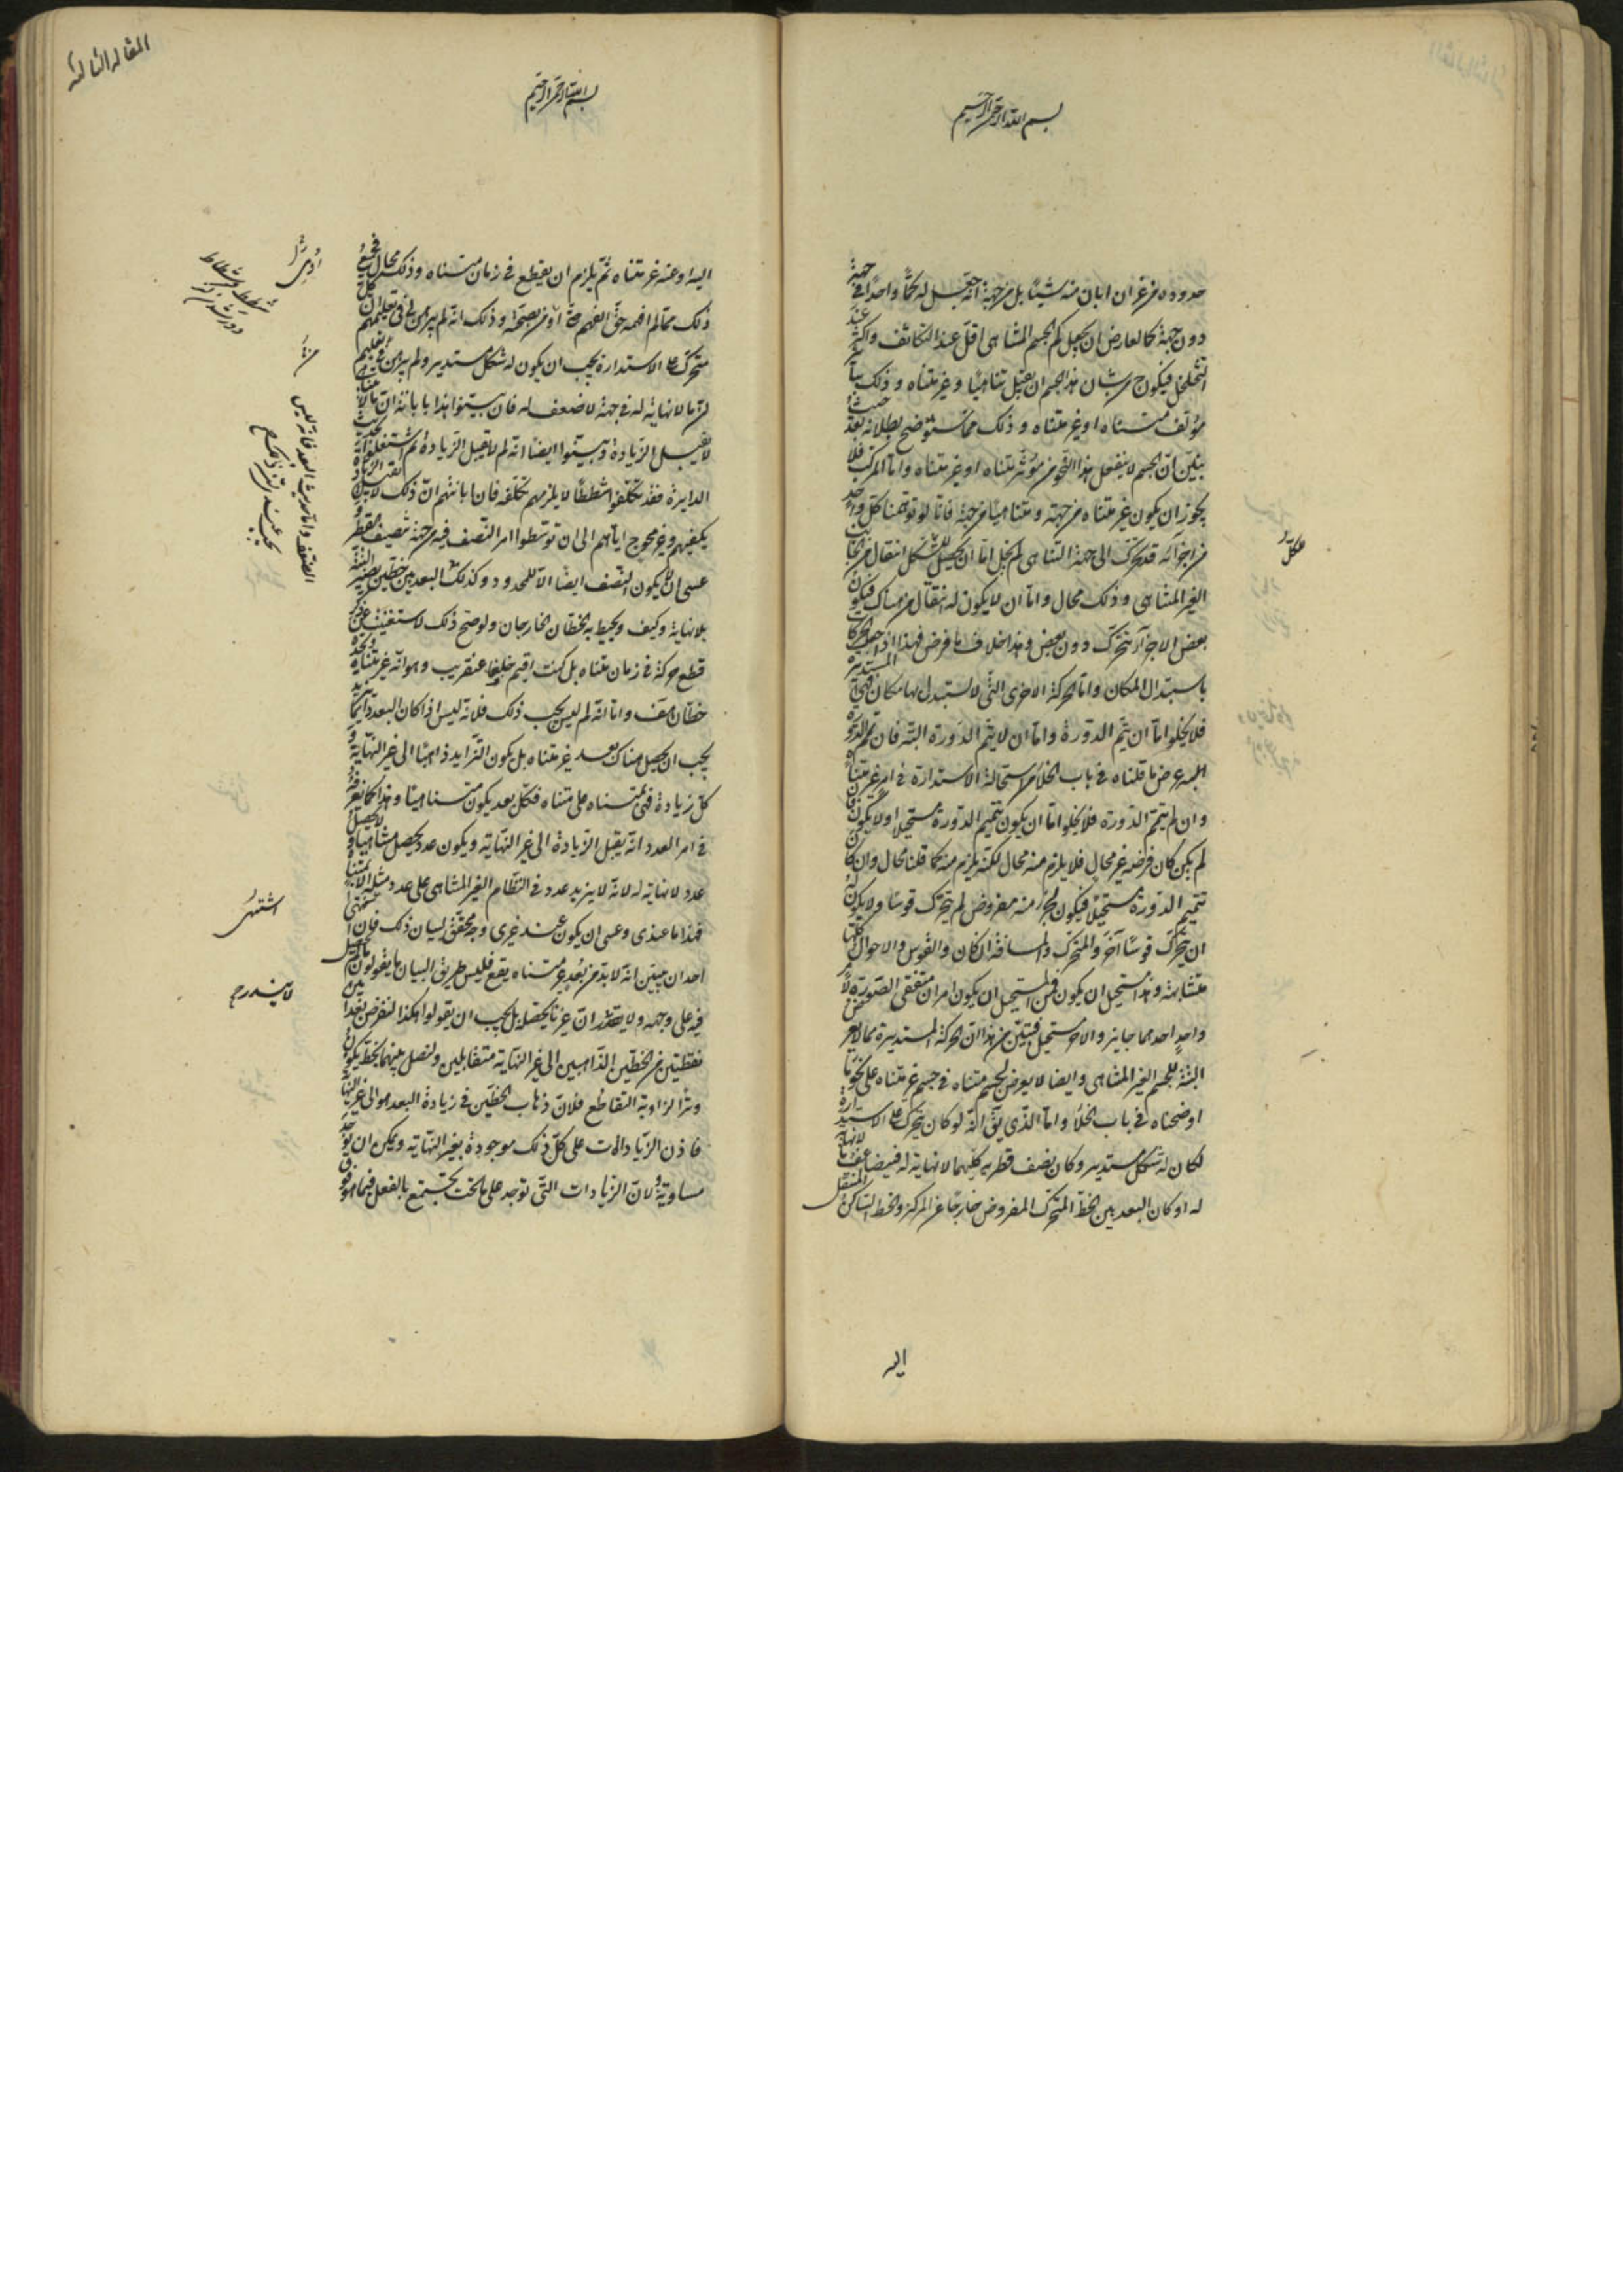 بسم الله الرحمن الرحيم
حدوده من غير ان ابان منه شيئا بل من جهة انه جعل له كما واحدا في جهة
دون جهة كالعارض ان يجعل كم الجسم المتناهى اقل عند التكاثف واكثر عند
التخلخل فيكون ح من شان هذا الجسم ان يقبل تناهيا وغير متناه وذلك
مؤلف متناه او غير متناه وذلك مما سنوضح بطلانه بعد حيث
نبين ان الجسم لا ينفعل هذا النحو من مؤثر متناه او غير متناه واما المركب فلا
يجوز ان يكون غير متناه من جهة ومتناهيا من جهة فانا لو توهمنا كل واحد
من اجزائه قد تحرك الى جهة التناهى لم يخل اما ان يحصل للشكل انتقال من الجانب
الغير المتناهى وذلك محال واما ان لا يكون له انتقال من هناك فيكون
بعض الاجزاء تتحرك دون بعض وهذا خلاف ما فرض فهذا اذا جعل الحركات
باستبدال المكان واما الحركة الاخرى التى لا تستبدل بها مكان فهى المستديرة
فلا يخلوا اما ان يتم الدورة واما ان لا يتم الدورة البته فان تم الدورة
عرض ما قلناه فى باب الخلأ من استحالة الاستدارة فى امر غير متناه
وان لم يتم الدورة فلا يخلوا اما ان يكون تتميم الدورة مستحيلا اولا يكون فان
لم يكن كان فرضه غير محال فلا يلزم منه محال لكنه يلزم منه كما قلنا محال وان كان
تتميم الدورة مستحيلا فيكون لجزء منه مفروض لم يتحرك قوسا ولا يكون له
ان يتحرك قوسا آخر والمتحرك والمسافة ان كان والقوس والاحوال كلها
متشابهة وهذا مستحيل ان يكون فمن المستحيل ان يكون امران متفقى الصورة
واحد احدهما جايز والاخر مستحيل فتبين من هذا ان الحركة المستديرة مما لا يعرض
البتة للجسم الغير المتناهى وايضا لا يعرض لجسم متناه فى جسم غير متناه على نحو ما
اوضحناه فى باب الخلأ واما الذى يق انه لو كان يتحرك على الاستدارة
لكان له شكل مستدير وكان نصف قطريه كليهما لا نهاية له فيضاعف ما لا نهاية
له او كان البعد بين الخط المتحرك المفروض خارجا عن المركز والخط الساكن المنتقل
اليه
المقالة الثالثة
بسم الله الرحمن الرحيم
اليه او عنه غير متناه ثم يلزم ان يقطع فى زمان متناه وذلك محال فجميع
ذلك مما لم افهمه حق الفهم حتى اومن بصحته وذلك انه لم يبرهن لى فى تعليمهم ان كل
متحرك على الاستدارة يجب ان يكون له شكل مستدير ولم يبرهن فى تعليمهم
ان ما لا نهاية له فى جهة لا ضعف له فان بينوا هذا بابانة ان ما لا يتناهى
لا يقبل الزيادة وبينوا ايضا انه لم لا يقبل الزيادة ثم اشتغلوا بحديث
الدايرة فقد تكلفوا شططا لا يلزمهم تكلفه فان ابانتهم ان ذلك لا يقبل الزيادة
يكفيهم وغير محوج اياهم الى ان توسطوا امر النصف فيه من جهة تنصيف القطر و
عسى ان لا يكون النصف ايضا الا للمحدود وكذلك البعد بين خطين يصير البتة
بلا نهاية وكيف ويحيط به الخطان الخارجان ولو صح ذلك لاستغنيت عن ذكر
قطع حركة فى زمان متناه بل كنت اقيم خلفا عنقريب وهو انه غير متناه ويحده
خطان هف واما انه لم ليس يجب ذلك فلانه ليس اذا كان البعد دايما يزيد
يجب ان يحصل هناك بعد غير متناه بل يكون التزايد ذاهبا الى غير النهاية و
كل زيادة فهى بمتناه على متناه فكل بعد يكون متناهيا وهذا كما نعرفه
فى امر العدد انه يقبل الزيادة الى غير النهاية ويكون عدد يحصل متناهيا ولا يحصل
عدد لا نهاية له لانه لا يزيد عدد فى النظام الغير المتناهى على عدد مثله الا بمتناه
فهذا ما عندى وعسى ان يكون عند غيرى وجه محقق لبيان ذلك فان اشتهى
احد ان يبين انه لا بد من بعد غير متناه يقع فليس طريق البيان ما يقولون
فيه على وجهه ان غيرنا يحصله بل يجب ان يقولوا هكذا لنفرض بعدا بين
نقطتين من الخطين الذاهبين الى غير النهاية متقابلين ولنصل بينهما بخط يكون
وترا لزاوية التقاطع فلان ذهاب الخطين فى زيادة البعد هو الى غير النهاية
فاذن الزيادات على كل ذلك موجودة بغير النهاية ويمكن ان يوجد
مساوية ولان الزيادات التى توجد على ما تحت يجتمع بالفعل فيما هو فوق
اشتهى
لا يندرج